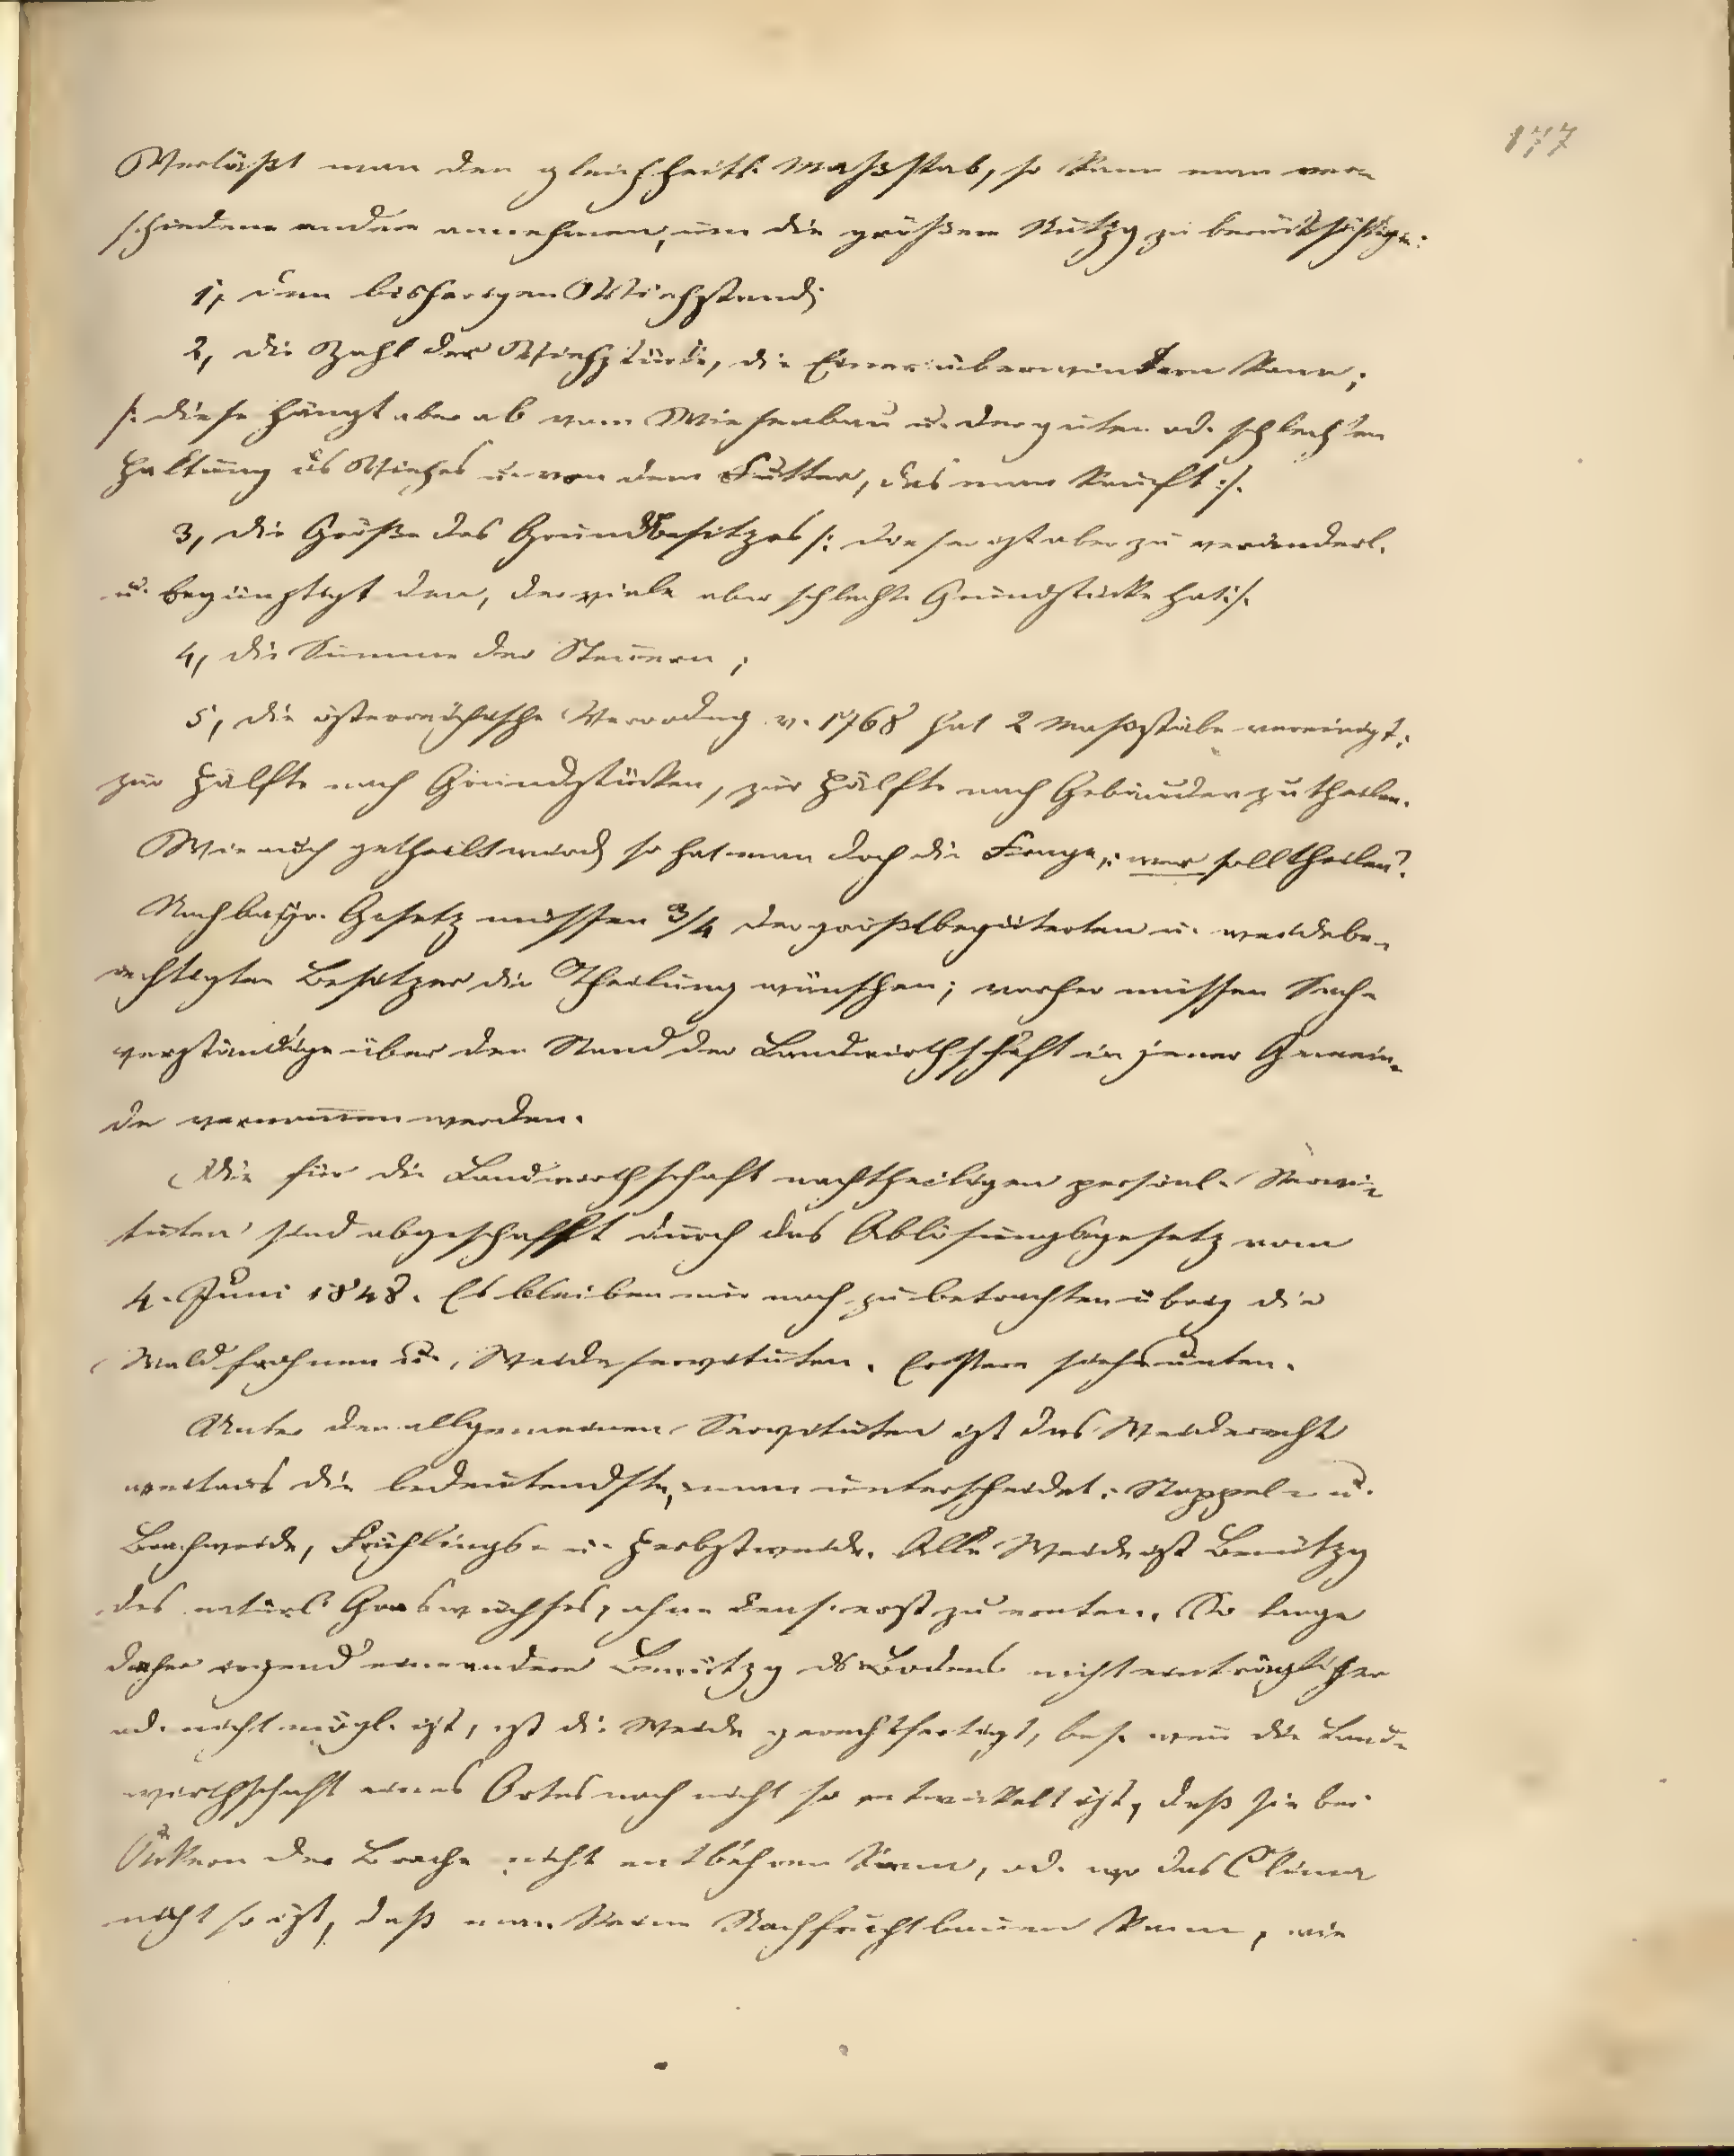 177
Verläßt man den gleichheitl. Maßstab, so kann man ver-
schiedene andere annehmen, um die größere Nutzg zu berücksichtigen:
1, den bisherigen Viehstand;
2, die Zahl der Viehstücke, die Einer überwintern kann;
/: diese hängt aber ab vom Wiesenbau u. der guten od. schlechten
Haltung des Viehes u. von dem Futter, das man kauft :/.
3, die Größe des Grundbesitzes /: dieser ist aber zu veränderl.
u. begünstigt den, der viele aber schlechte Grundstücke hat :/.
4, die Summe der Steuern;
5, die österreichische Verordng v. 1768 hat 2 Maßstäbe vereinigt:
zur Hälfte nach Grundstücken, zur Hälfte nach Gebäuden zu theilen.
Wie auch getheilt wird, so hat man doch die Frage: wer soll theilen?
Nach bayr. Gesetz müssen 3/4 der großbegüterten u. weidebe-
rechtigten Besitzer die Theilung wünschen; vorher müssen Sach-
verständige über den Stand der Landwirthschaft in jener Gemein-
de vernommen werden.
Die für die Landwirthschaft nachtheiligen persönl. Servi-
tuten sind abgeschafft durch das Ablösungsgesetz vom
4. Juni 1848. Es bleiben nur noch zu betrachten übrig die
Waldfrohnen u. Weideservituten. Erstere siehe unten.
Unter den allgemeinen Servituten ist das Weiderecht
weitaus die bedeutendste, man unterscheidet: Stoppel- u.
Brachweide, Frühlings- u. Herbstweide. Alle Weide ist Benützg
des natürl. Graswuchses, ohne dens. erst zu ernten. So lange
daher irgend eine andere Benützg des Bodens nicht einträglicher
od. nicht mögl. ist, ist die Weide gerechtfertigt, bes. wenn die Land-
wirthschaft eines Ortes noch nicht so entwickelt ist, daß sie bei
Äckern der Brache nicht entbehren kann, od. wo das Clima
nicht so ist, daß man keine Nachfrucht bauen kann, wie